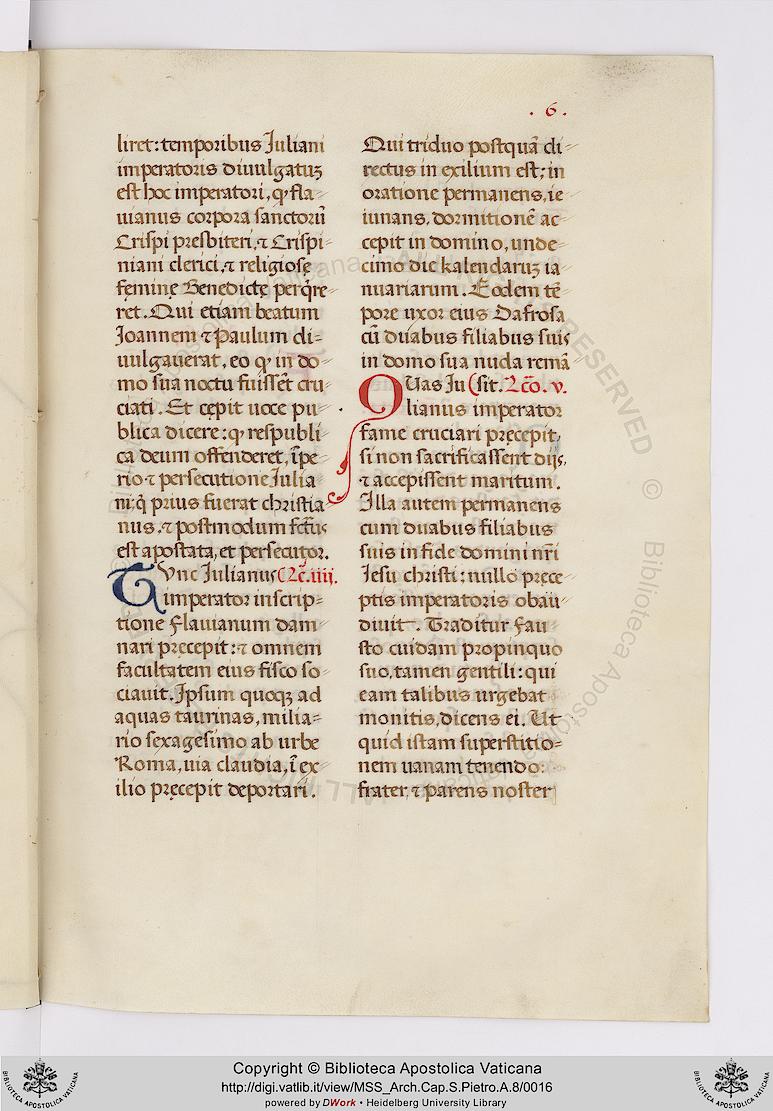 . 6 .
liret: temporibus Juliani
imperatoris diuulgatuꝫ
est hoc imperatori, qꝫ fla-
uianus corpora sanctorū
Crispi presbiteri, ⁊ Crispi-
niani clerici, ⁊ religiosę
feminę Benedictę perq̄re-
ret. Qui etiam beatum
Joannem ⁊ Paulum di-
uulgauerat, eo qꝫ in do-
mo sua noctu fuissēt cru-
ciati. Et cępit uoce pu-
blica dicere: qꝫ respubli-
ca deum offenderet, īpe-
rio ⁊ persecutione Julia
ni: q̇ prius fuerat christia-
nus, ⁊ postmodum fctus
est apostata, et persecutor.
Tvnc Iulianus (Lc̄. iiii.
imperator inscrip-
tione Flauianum dam-
nari pręcepit: ⁊ omnem
facultatem eius fisco so-
ciauit. Ipsum quoqꝫ ad
aquas taurinas, milia-
rio sexagesimo ab urbe
Roma, uia claudia, ī ex-
ilio pręcepit deportari.
Qui triduo postquā di-
rectus in exilium est; in
oratione permanens, ie
iunans, dormitionē ac-
cepit in domino, unde-
cimo die kalendaruꝫ ia-
nuariarum. Eodem tē-
pore uxor eius Dafrosa
cū duabus filiabus suis
in domo sua nuda remā
QUas Iu (sit. Lc̄o. v.
lianus imperator
fame cruciari pręcepit,
si non sacrificassent diis,
⁊ accepissent maritum.
Illa autem permanens
cum duabus filiabus
suis in fide domini nr̄i
Iesu christi: nullo pręce-
ptis imperatoris obau-
diuit. Traditur Fau
sto cuidam propinquo
suo, tamen gentili: qui
eam talibus urgebat
monitis, dicens ei. Ut
quid istam superstitio-
nem uanam tenendo:
frater, ⁊ parens noster
Copyright © Biblioteca Apostolica Vaticana
http://digi.vatlib.it/view/MSS_Arch.Cap.S.Pietro.A.8/0016
powered by DWork • Heidelberg University Library
BIBLIOTECA APOSTOLICA VATICANA
BIBLIOTECA APOSTOLICA VATICANA